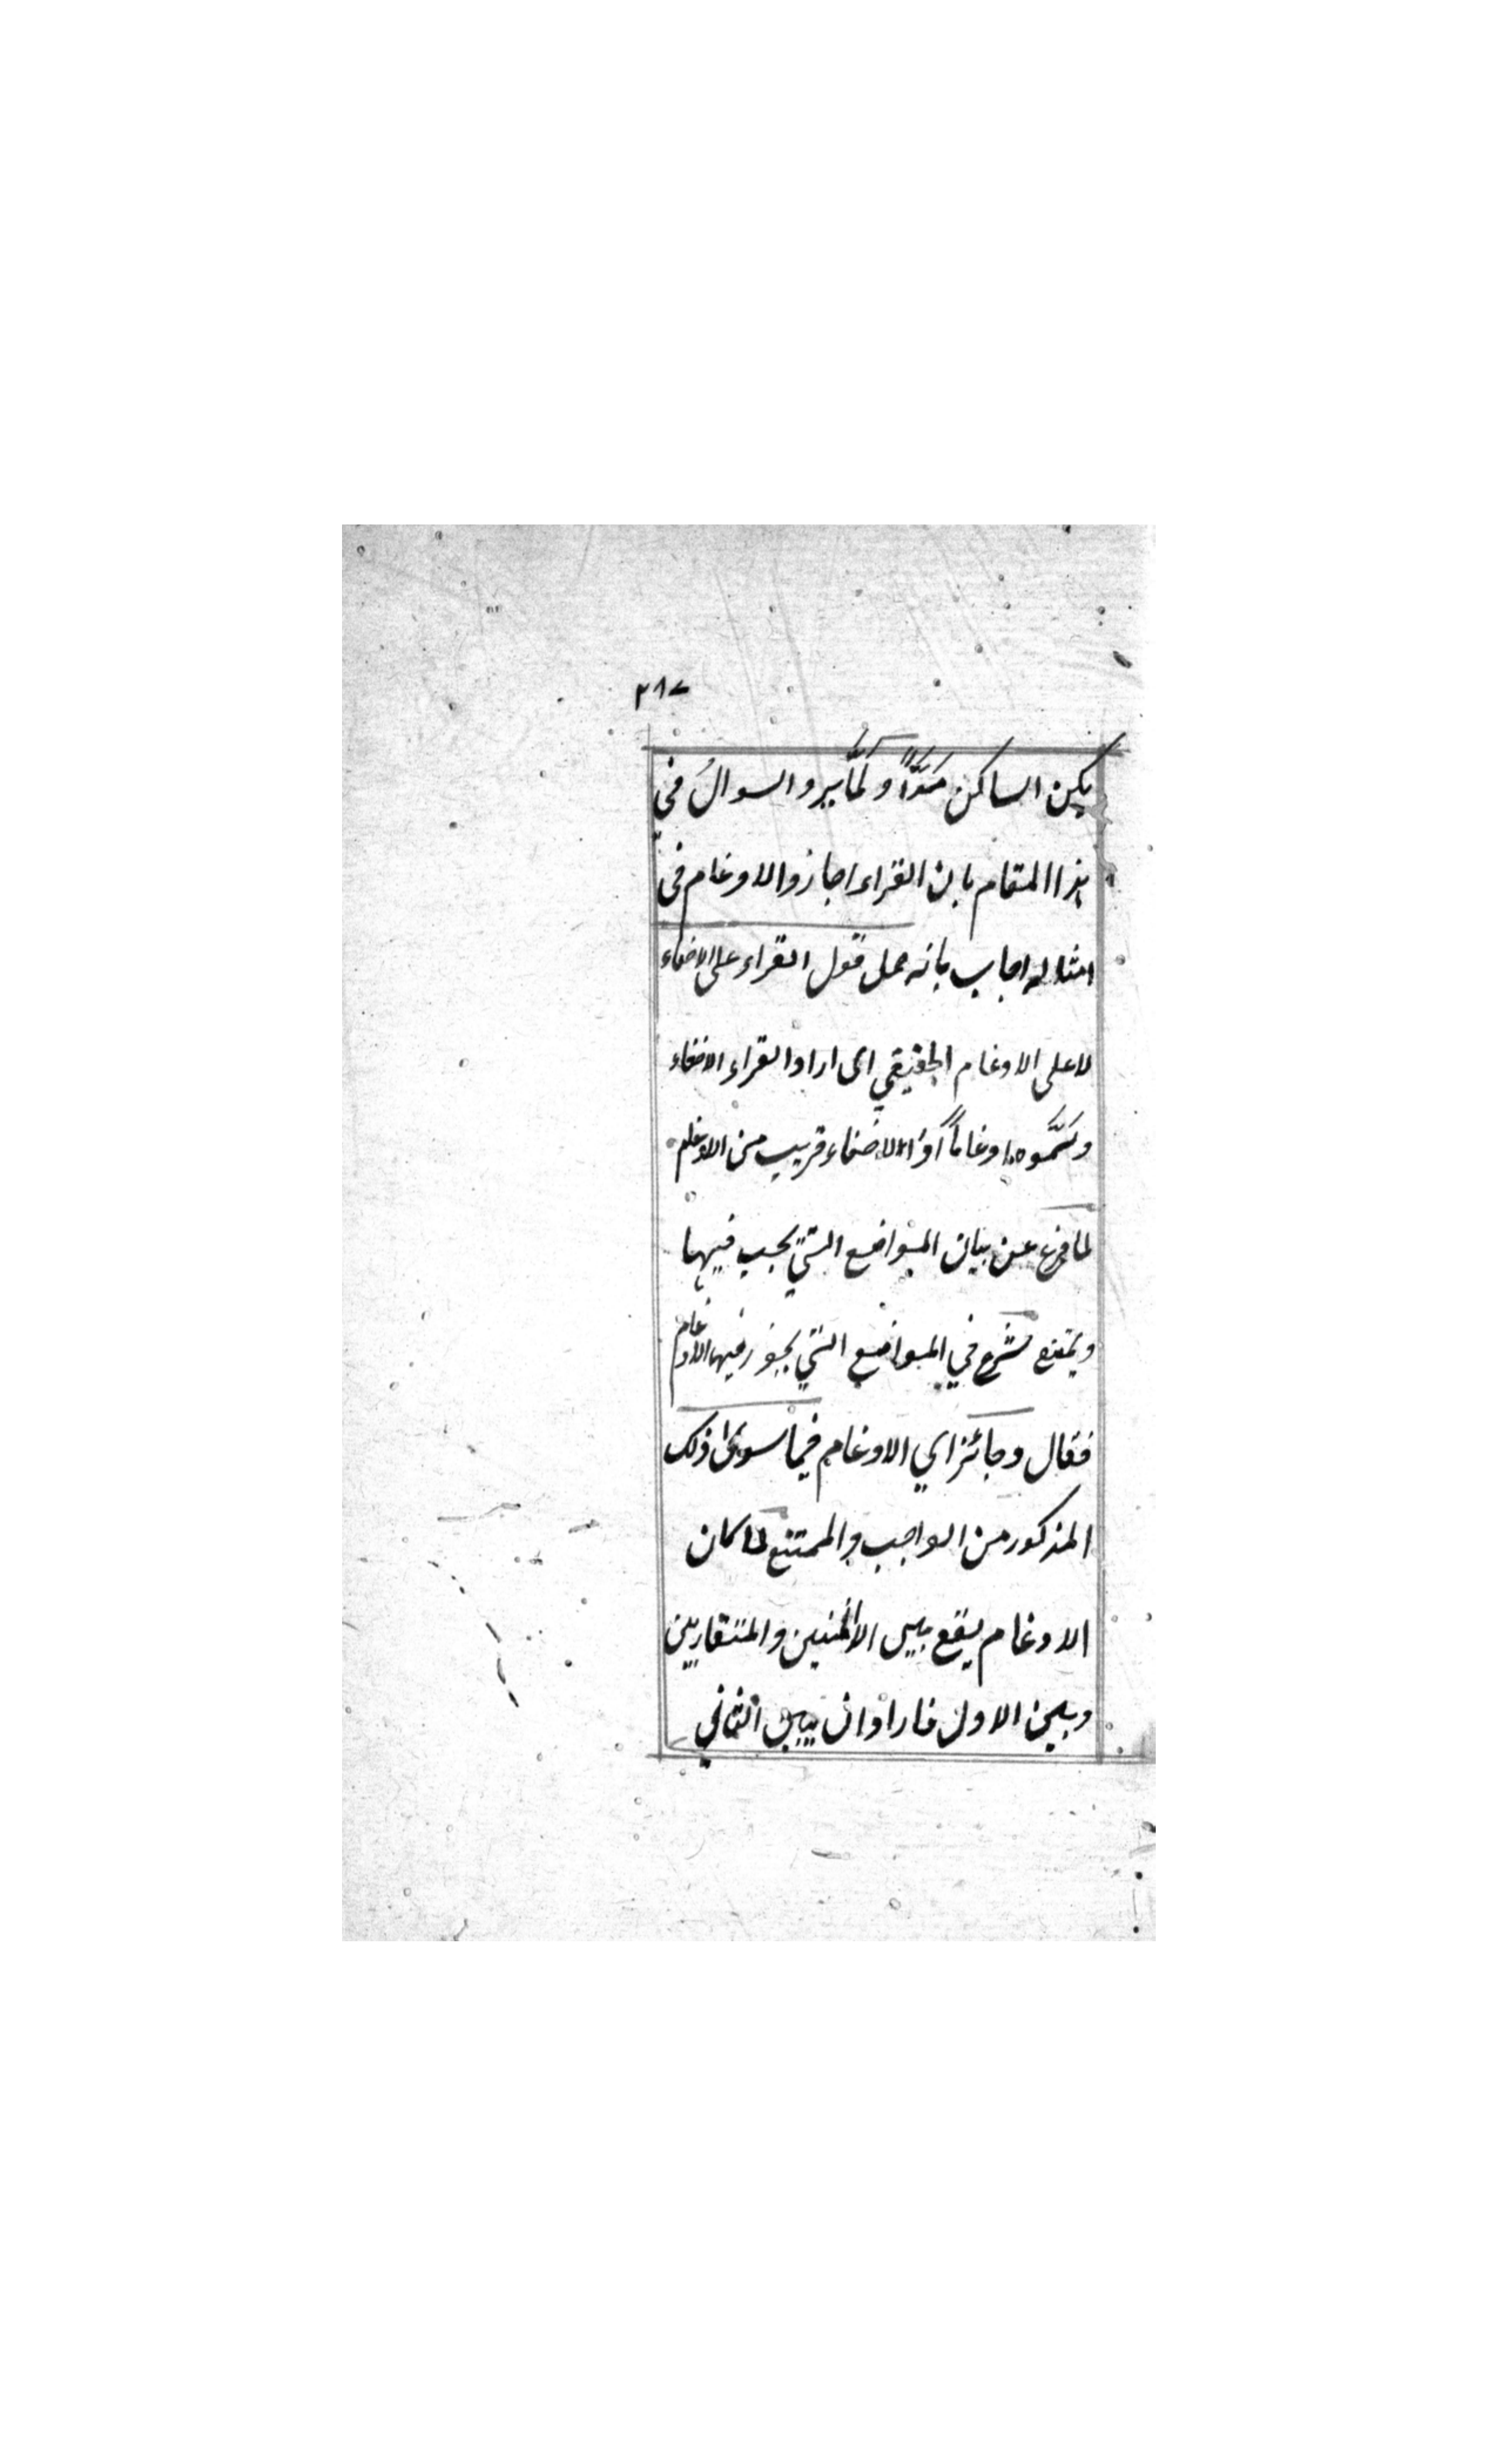 ٣٨٧
يكن الساكن مَدّاً ولمّا يرد السوالُ في
هذا المقام بان القراء اجازوا الادغام في
امثاله اجاب بانه حمل قول القراء على الاخفاء
لا على الادغام الحقيقي اى اراد القراء الاخفاء
وسَمَّوه ادغاماً اذ الاخفاء قريب من الادغام
لما فرغ عن بيان المواضع التي يجب فيها
ويمتنع شرع في المواضع التي يجوز فيها الادغام
فقال وجائز اي الادغام فيما سوى ذلك
المذكور من الواجب والممتنع لما كان
الادغام يقع بين المثلين والمتقاربين
وبين الاول فاراد ان يبين الثاني